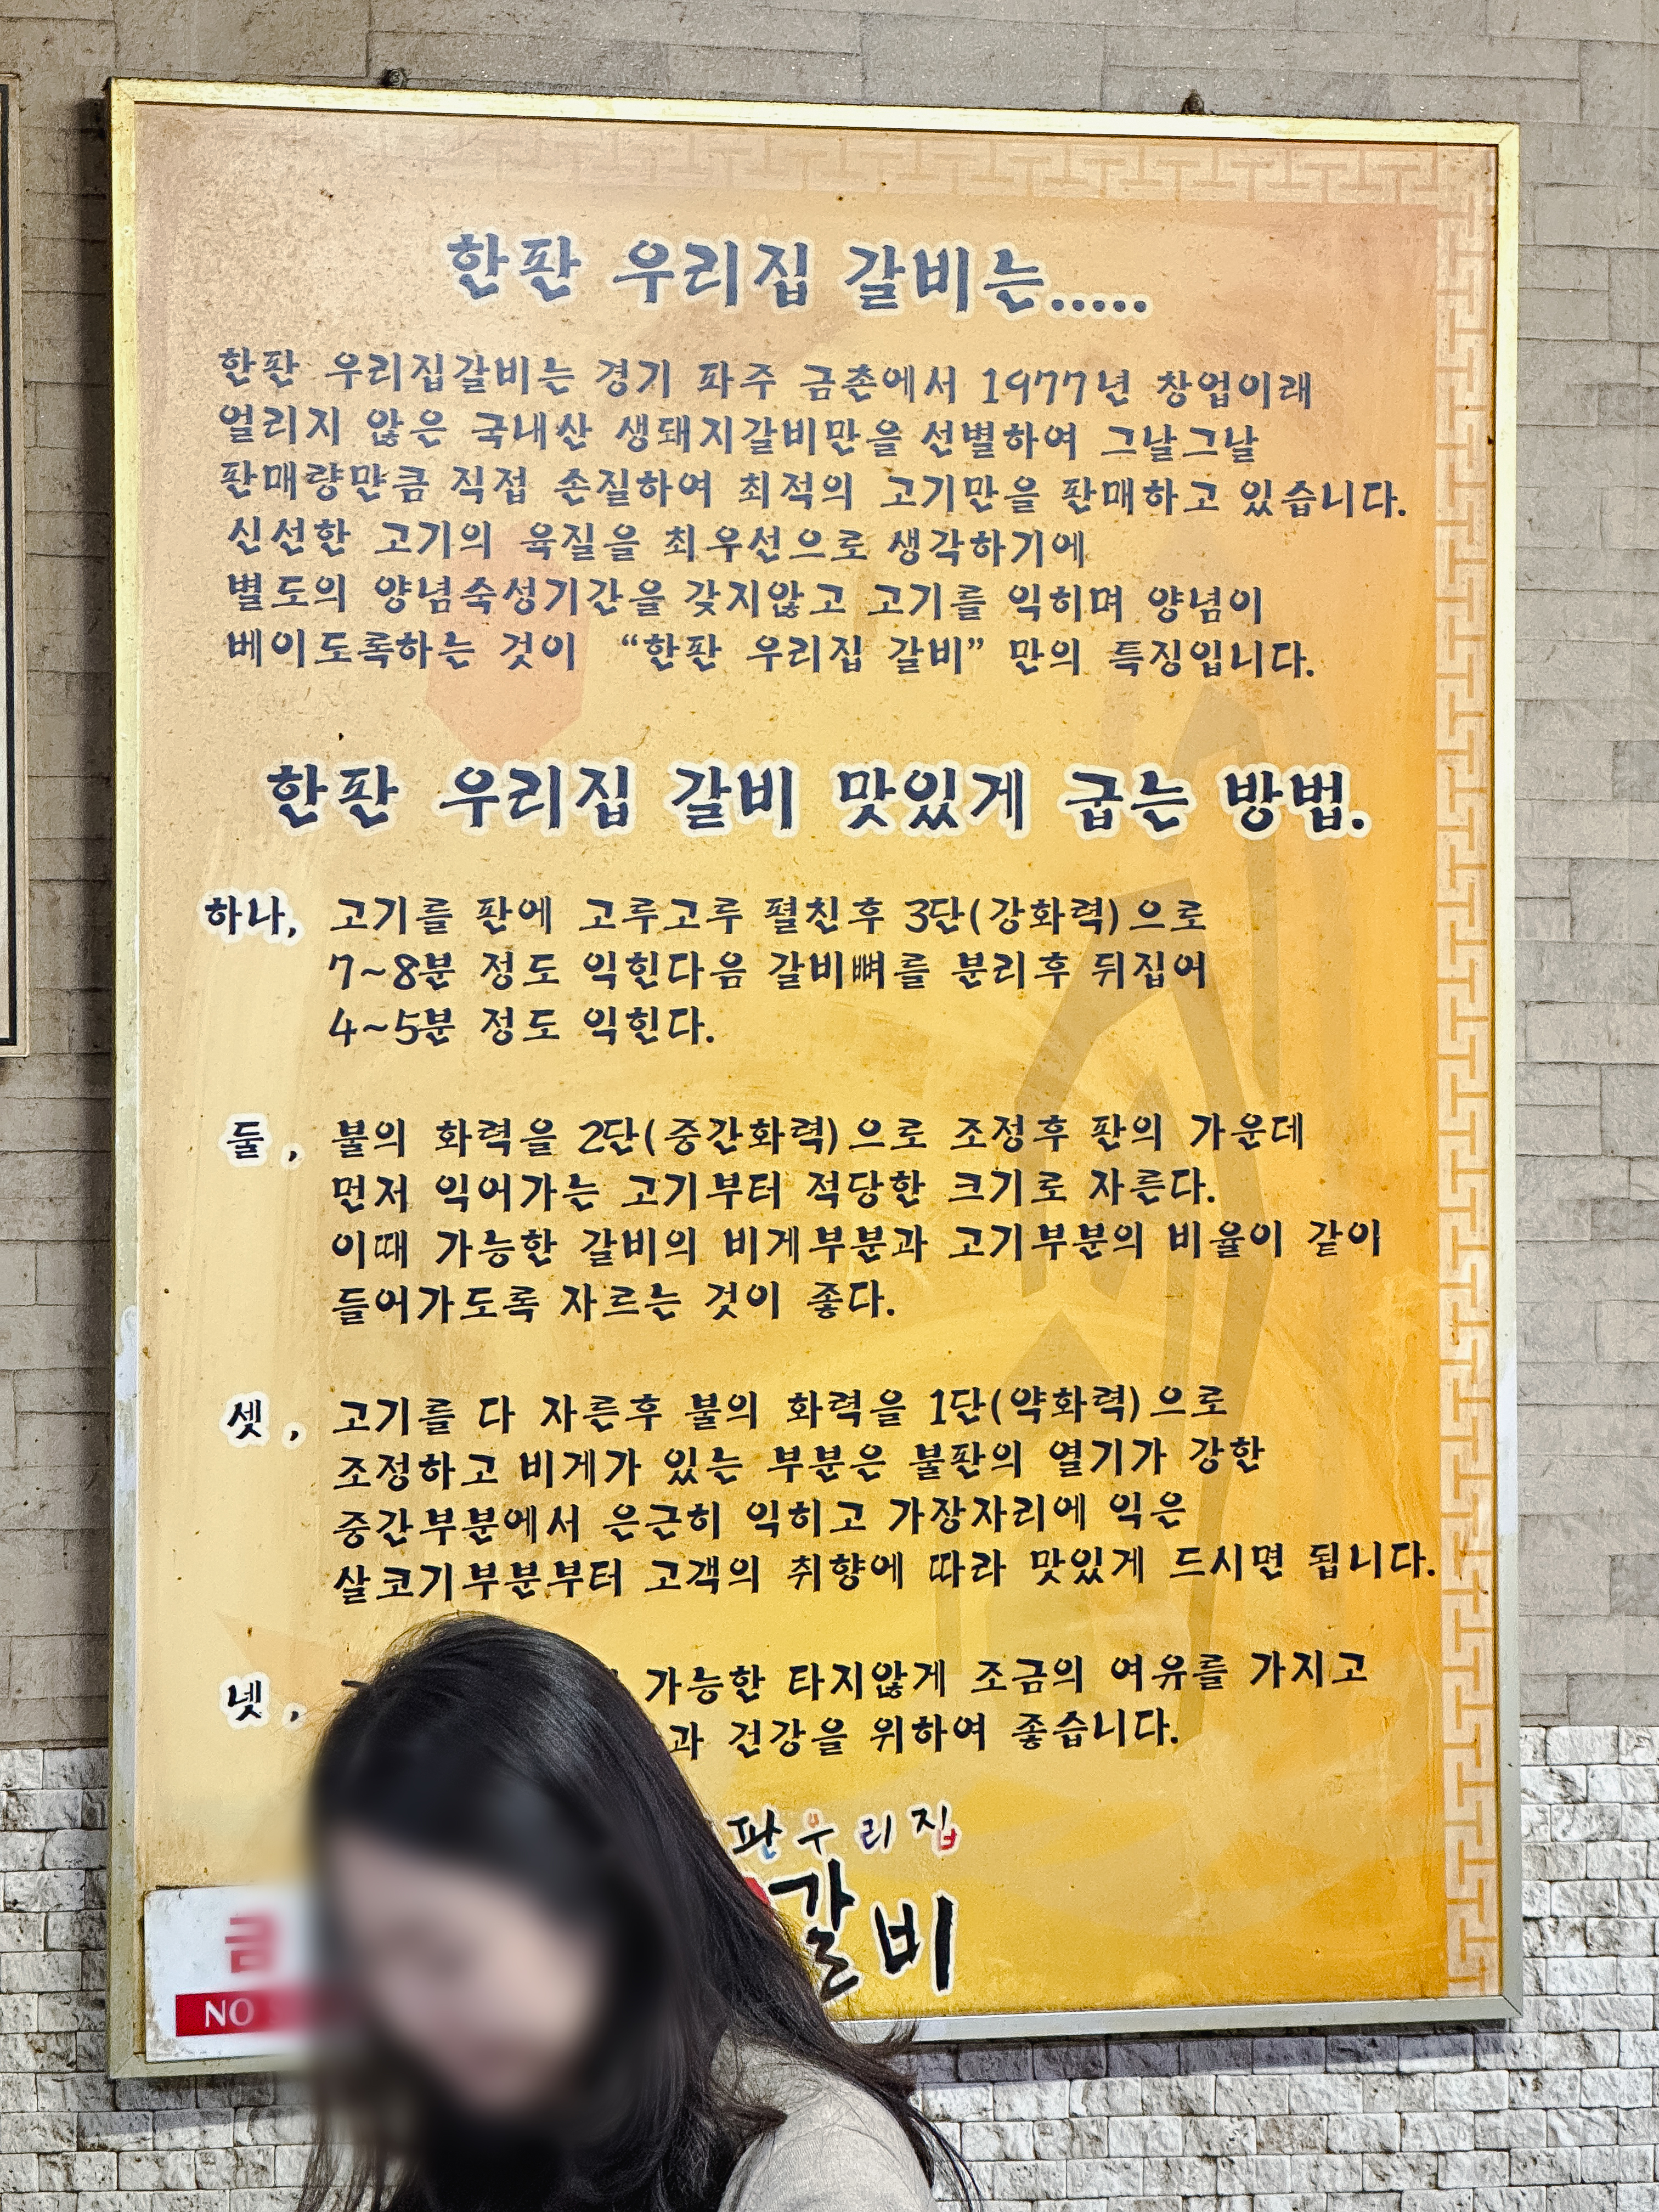 한판 우리집 갈비는.....
한판 우리집갈비는 경기 파주 금촌에서 1977년 창업이래
얼리지 않은 국내산 생돼지갈비만을 선별하여 그날그날
판매량만큼 직접 손질하여 최적의 고기만을 판매하고 있습니다.
신선한 고기의 육질을 최우선으로 생각하기에
별도의 양념숙성기간을 갖지않고 고기를 익히며 양념이
베이도록하는 것이 “한판 우리집 갈비” 만의 특징입니다.
한판 우리집 갈비 맛있게 굽는 방법.
하나, 고기를 판에 고루고루 펼친후 3단(강화력)으로
7~8분 정도 익힌다음 갈비뼈를 분리후 뒤집어
4~5분 정도 익힌다.
둘, 불의 화력을 2단(중간화력)으로 조정후 판의 가운데
먼저 익어가는 고기부터 적당한 크기로 자른다.
이때 가능한 갈비의 비게부분과 고기부분의 비율이 같이
들어가도록 자르는 것이 좋다.
셋, 고기를 다 자른후 불의 화력을 1단(약화력)으로
조정하고 비게가 있는 부분은 불판의 열기가 강한
중간부분에서 은근히 익히고 가장자리에 익은
살코기부분부터 고객의 취향에 따라 맛있게 드시면 됩니다.
넷, 가능한 타지않게 조금의 여유를 가지고
과 건강을 위하여 좋습니다.
판우리집
갈비
금
NO